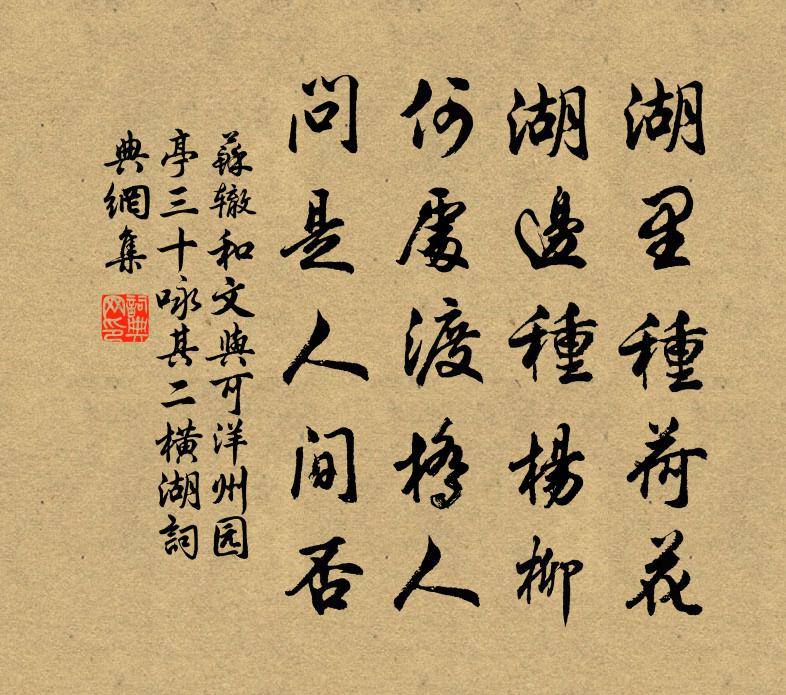 湖里種荷花
湖邊種楊柳
何處渡橋人
問是人間否
蘇辙和文與可洋州园
亭三十咏其二橫湖詞
典網集
詞典
网印